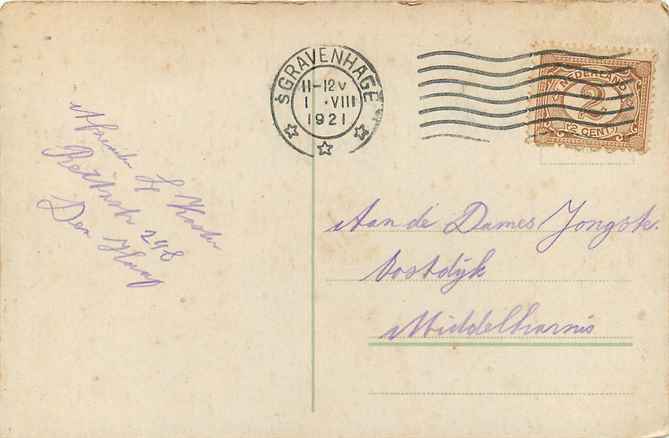 'SGRAVENHAGE
11-12V
1 .VIII
1921
NEDERLAND
2
2 CENT
Afzender
248
Den Haag
Aan de Dames Jongst.
Oostdijk
Middelharnis